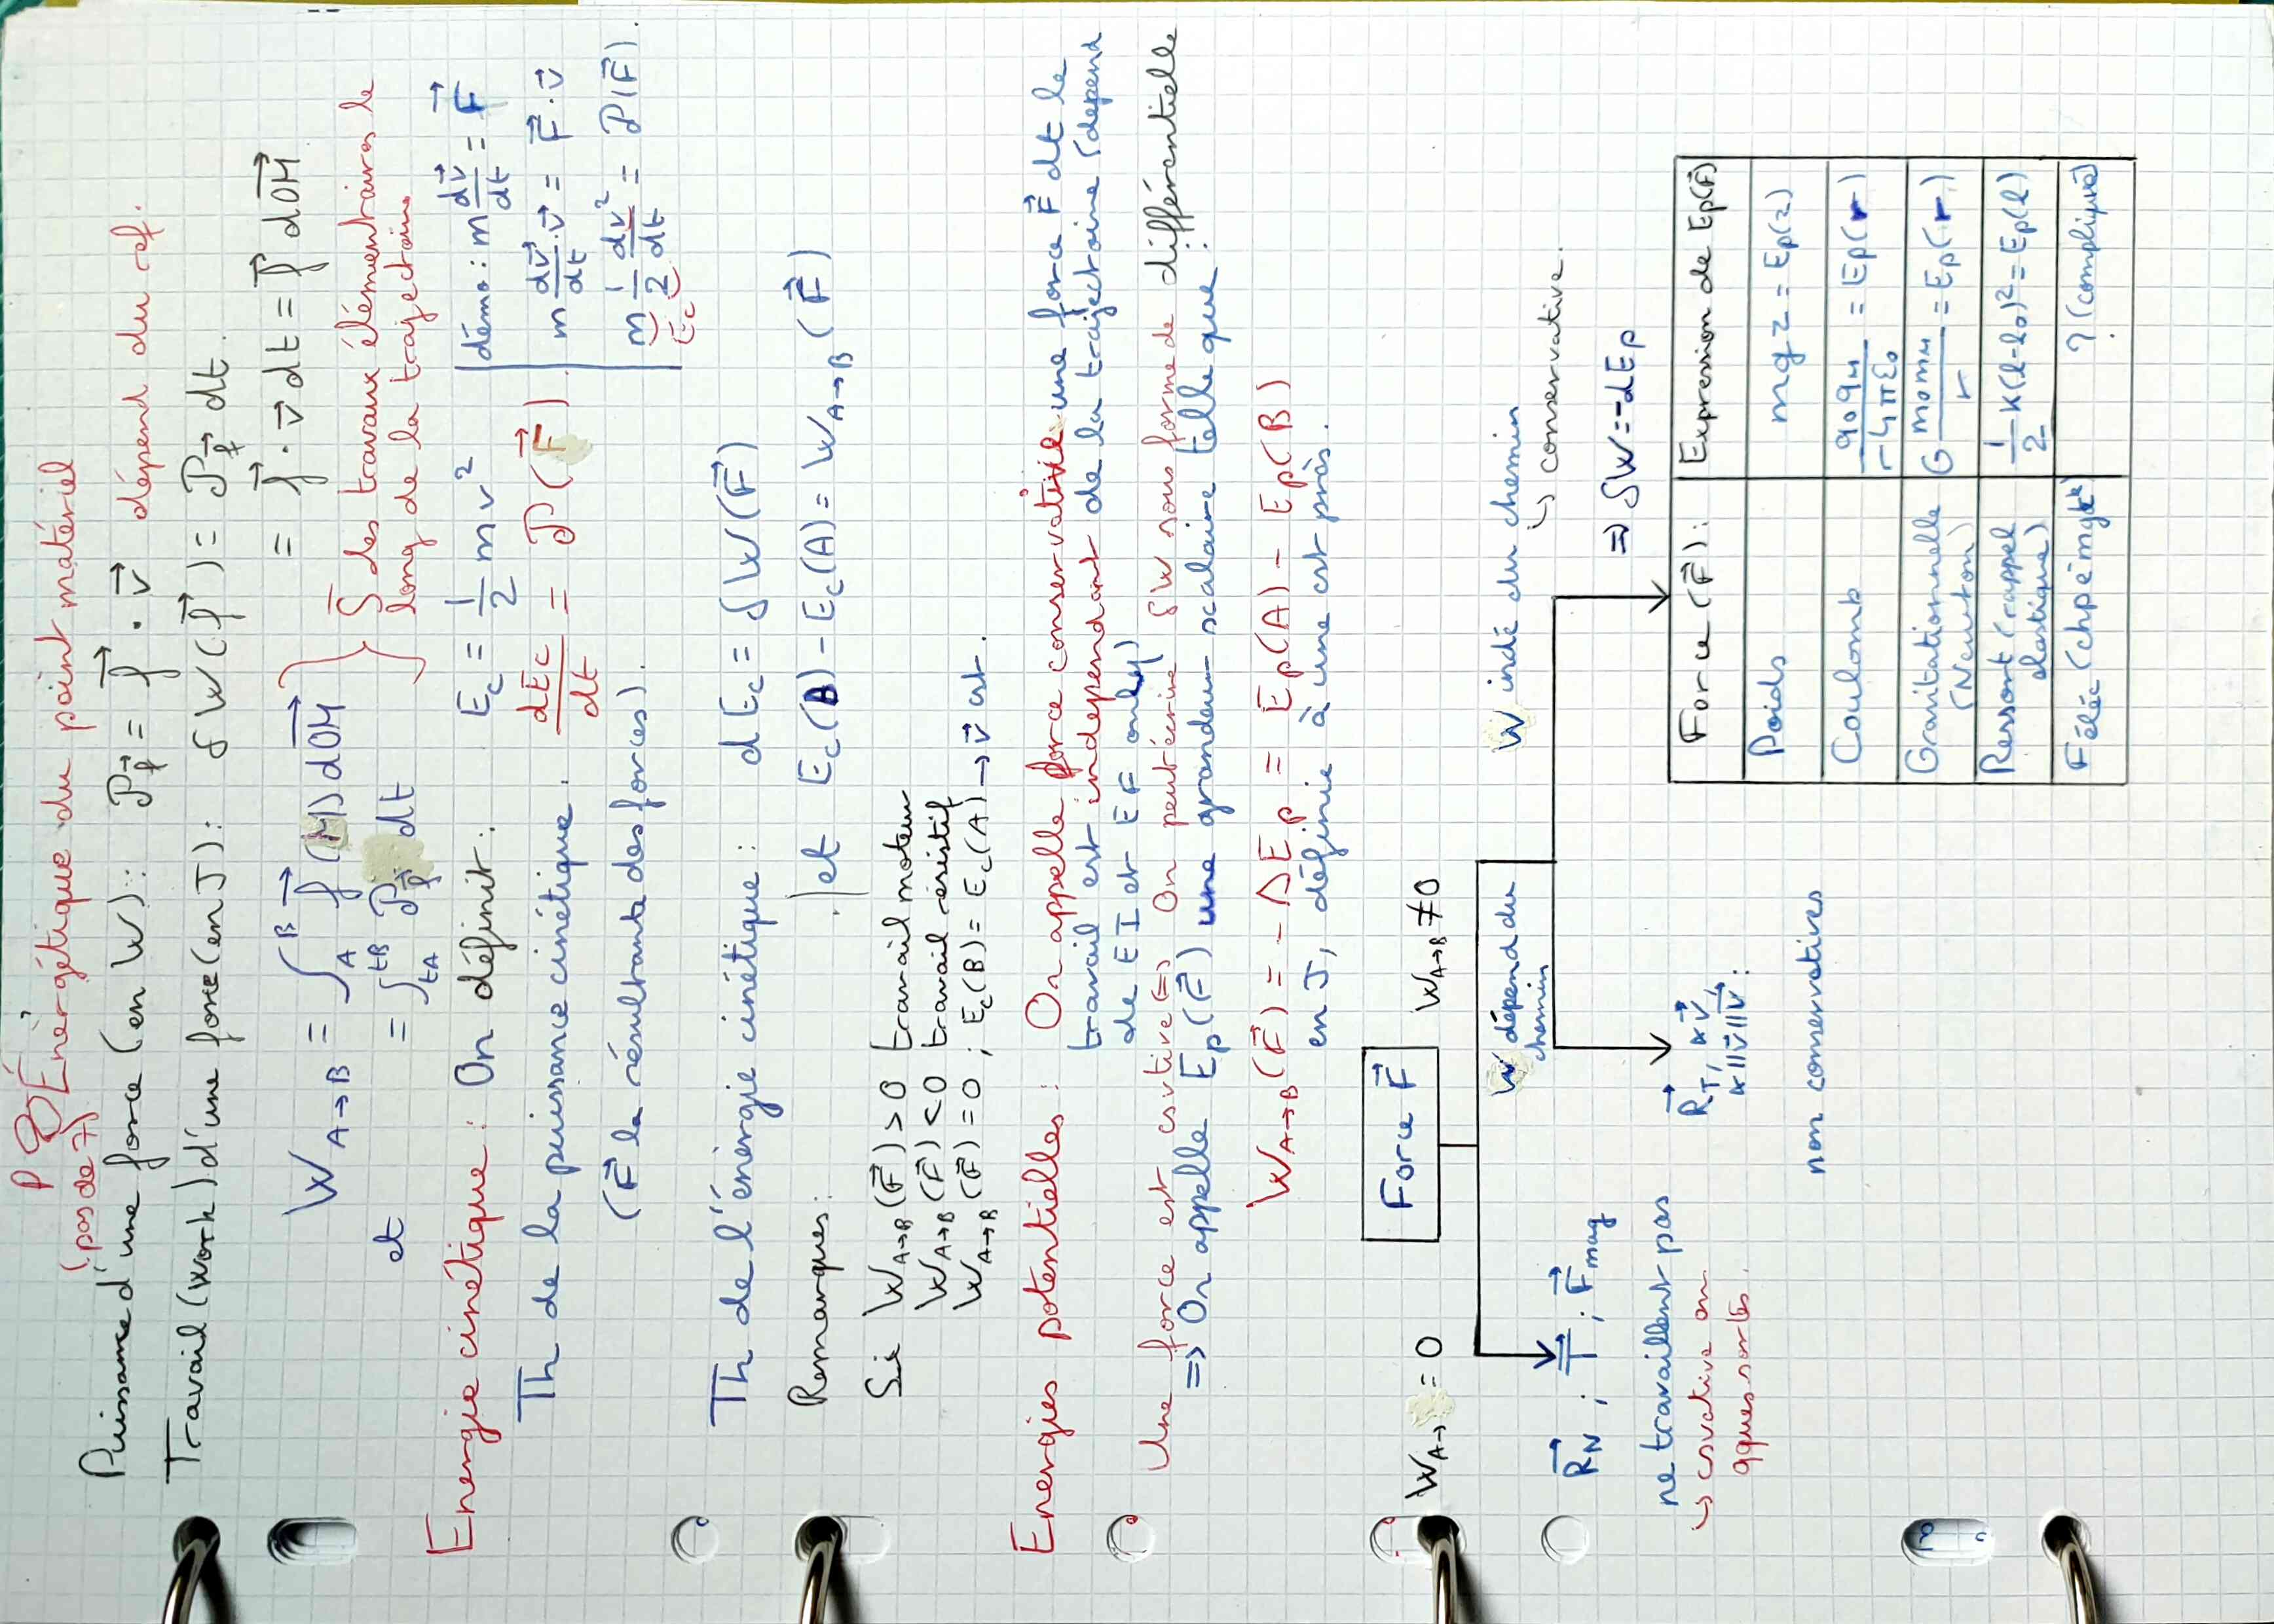 P 8 Énergétique du point matériel
(pas de 7)
Puissance d'une force (en W) : P_f⃗ = f⃗ · v⃗ dépend du ref.
Travail (work) d'une force (en J) : δW(f⃗) = P_f⃗ dt.
= f⃗ · v⃗ dt = f⃗ dOM⃗
W_A→B = ∫_A^B f⃗ (M) dOM⃗
et = ∫_tA^tB P_f⃗ dt
} S des travaux élémentaires le
long de la trajectoire
Énergie cinétique : On définit : E_c = 1/2 m v²
Th de la puissance cinétique : dE_c/dt = P(F⃗)
(F⃗ la résultante des forces).
démo : m dv⃗/dt = F⃗
m dv⃗/dt · v⃗ = F⃗ · v⃗
m 1/2 dv²/dt = P(F⃗).
E_c
Th de l'énergie cinétique : dE_c = δW(F⃗)
et E_c(B) - E_c(A) = W_A→B (F⃗)
Remarques :
Si W_A→B (F⃗) > 0 travail moteur
W_A→B (F⃗) < 0 travail résistif
W_A→B (F⃗) = 0 ; E_c(B) = E_c(A) → v⃗ cst.
Energies potentielles : On appelle force conservative une force F⃗ dt le
travail est indépendant de la trajectoire (dépend
de EI et EF only)
Une force est csvtive <=> On peut écrire δW sous forme de différentielle
=> On appelle Ep(F⃗) une grandeur scalaire telle que :
W_A→B(F⃗) = - ΔEp = Ep(A) - Ep(B)
en J, définie à une cst près.
Force F⃗
W_A→ = 0
W_A→B ≠ 0
R_N⃗ ; T⃗ ; F⃗_mag
ne travaillent pas
↪ csvative en
qques sortes.
W dépend du
chemin
R_T⃗, α v⃗,
α ||v⃗|| v⃗ :
non conservatives
W indé du chemin
↪ conservative.
=> δW = -dEp
Force (F⃗) : | Expression de Ep(F⃗)
Poids | mgz = Ep(z)
Coulomb | q_0 q_M / -4πε_0 = Ep(r)
Gravitationnelle (Newton) | G m_0 m_M / r = Ep(r)
Ressort (rappel élastique) | 1/2 k(l-l_0)² = Ep(l)
F élec (chp émgtk) | ? (compliqué)